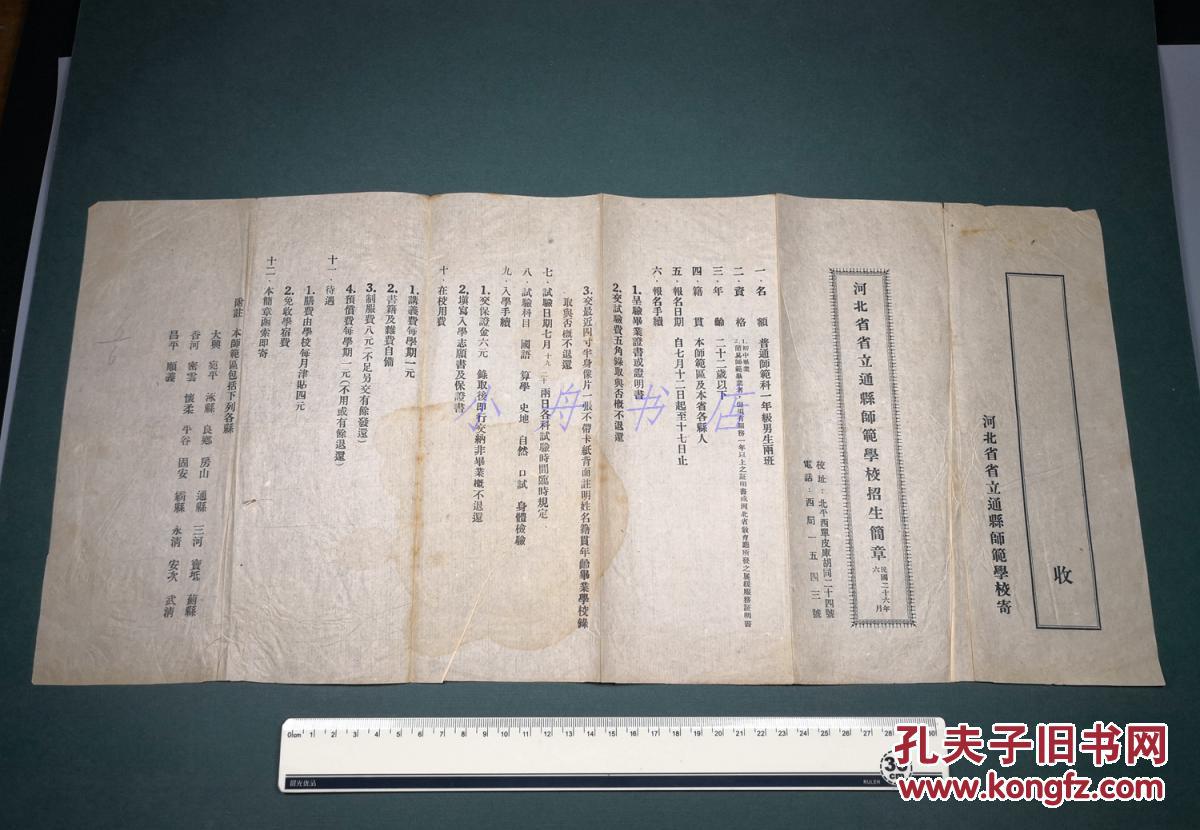 收
河北省省立通縣師範學校寄
河北省省立通縣師範學校招生簡章 民國二十六年六月
校址：北平西單皮庫胡同二十四號
電話：西局一五四三號
一．名額 普通師範科一年級男生兩班
二．資格 1.初中畢業
三．年齡 二十二歲以下
四．籍貫 本師範區及本省各縣人
五．報名日期 自七月十二日起至十七日止
六．報名手續
1.呈驗畢業證書或證明書
2.交試驗費五角錄取與否概不退還
3.交最近四寸半身像片一張不帶卡紙背面註明姓名籍貫年齡畢業學校錄
取與否概不退還
七．試驗日期七月十九、二十兩日各科試驗時間臨時規定
八．試驗科目 國語 算學 史地 自然 口試 身體檢驗
九．入學手續
1.交保證金六元 錄取後即行交納非畢業概不退還
2.填寫入學志願書及保證書
十．在校用費
1.講義費每學期一元
2.書籍及雜費自備
3.制服費八元(不足另交有餘發還)
4.預償費每學期一元(不用或有餘退還)
十一．待遇
1.膳費由學校每月津貼四元
2.免收學宿費
十二．本簡章函索即寄
附註 本師範區包括下列各縣
大興 宛平 涿縣 良鄉 房山 通縣 三河 寶坻 薊縣
香河 密雲 懷柔 平谷 固安 霸縣 永清 安次 武清
昌平 順義
小舟书店
0cm 1 2 3 4 5 6 7 8 9 10 11 12 13 14 15 16 17 18 19 20 21 22 23 24 25 26 27 28 29 30
30
cm
RULER
孔夫子旧书网
www.kongfz.com